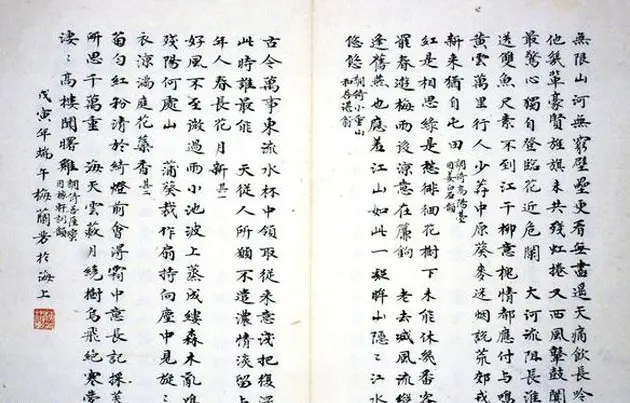 無限山河無窮壁壘更看無盡遥天痛飲長吟
他幾輩豪賢旌旗未共殘紅捲又西風鼙鼓闐
最驚心獨自登臨花近危闌 大河流阻長淮
送雙魚尺素不到江干柳意槐情都應付與鳴
黄雲萬里行人少莽中原葵麥迷烟説荒郊戎
新來猶自屯田 調倚高陽臺
紅是相思緣是愁徘徊花樹下未能休幾番客
罷春遊梅雨後涼意在簾鉤 老去減風流縱
逢舊燕也應羞江山如此一凝眸山隱〻江水
悠悠 調倚小重山
和吾湛翁
古今萬事東流水杯中領取從来意淺把後深
此時誰最能 天從人所願不遣濃情淡留占
年人春長花月新 其一
好風不至激過雨小池波上蒸成縷森木亂鳴
殘陽何處山 蒲葵裁作扇持向塵中見旋〻
衣涼滿庭花藥香 其二
匀紅粉清於綺燈前會得霜中意長記採芙
所思千萬重 海天雲藪月繞樹烏飛絶寒夢
淒〻高樓聞曙雞 調倚菩薩蠻
用稼軒詞韻
戊寅年端午梅蘭芳於海上